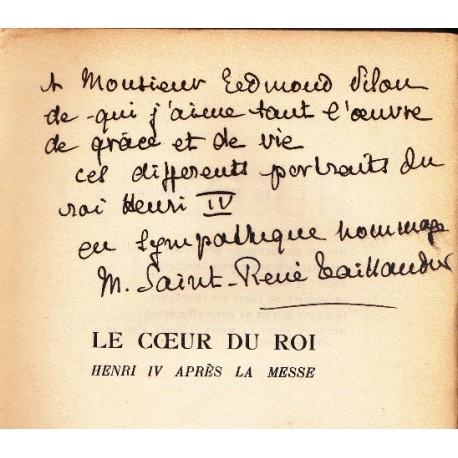 A Monsieur Eedmond Pilon
de qui j'aime tant l'œuvre
de grâce et de vie
ces differents portraits du
roi Henri IV
en sympathique hommage
M. Saint-René Taillandier
LE CŒUR DU ROI
HENRI IV APRÈS LA MESSE